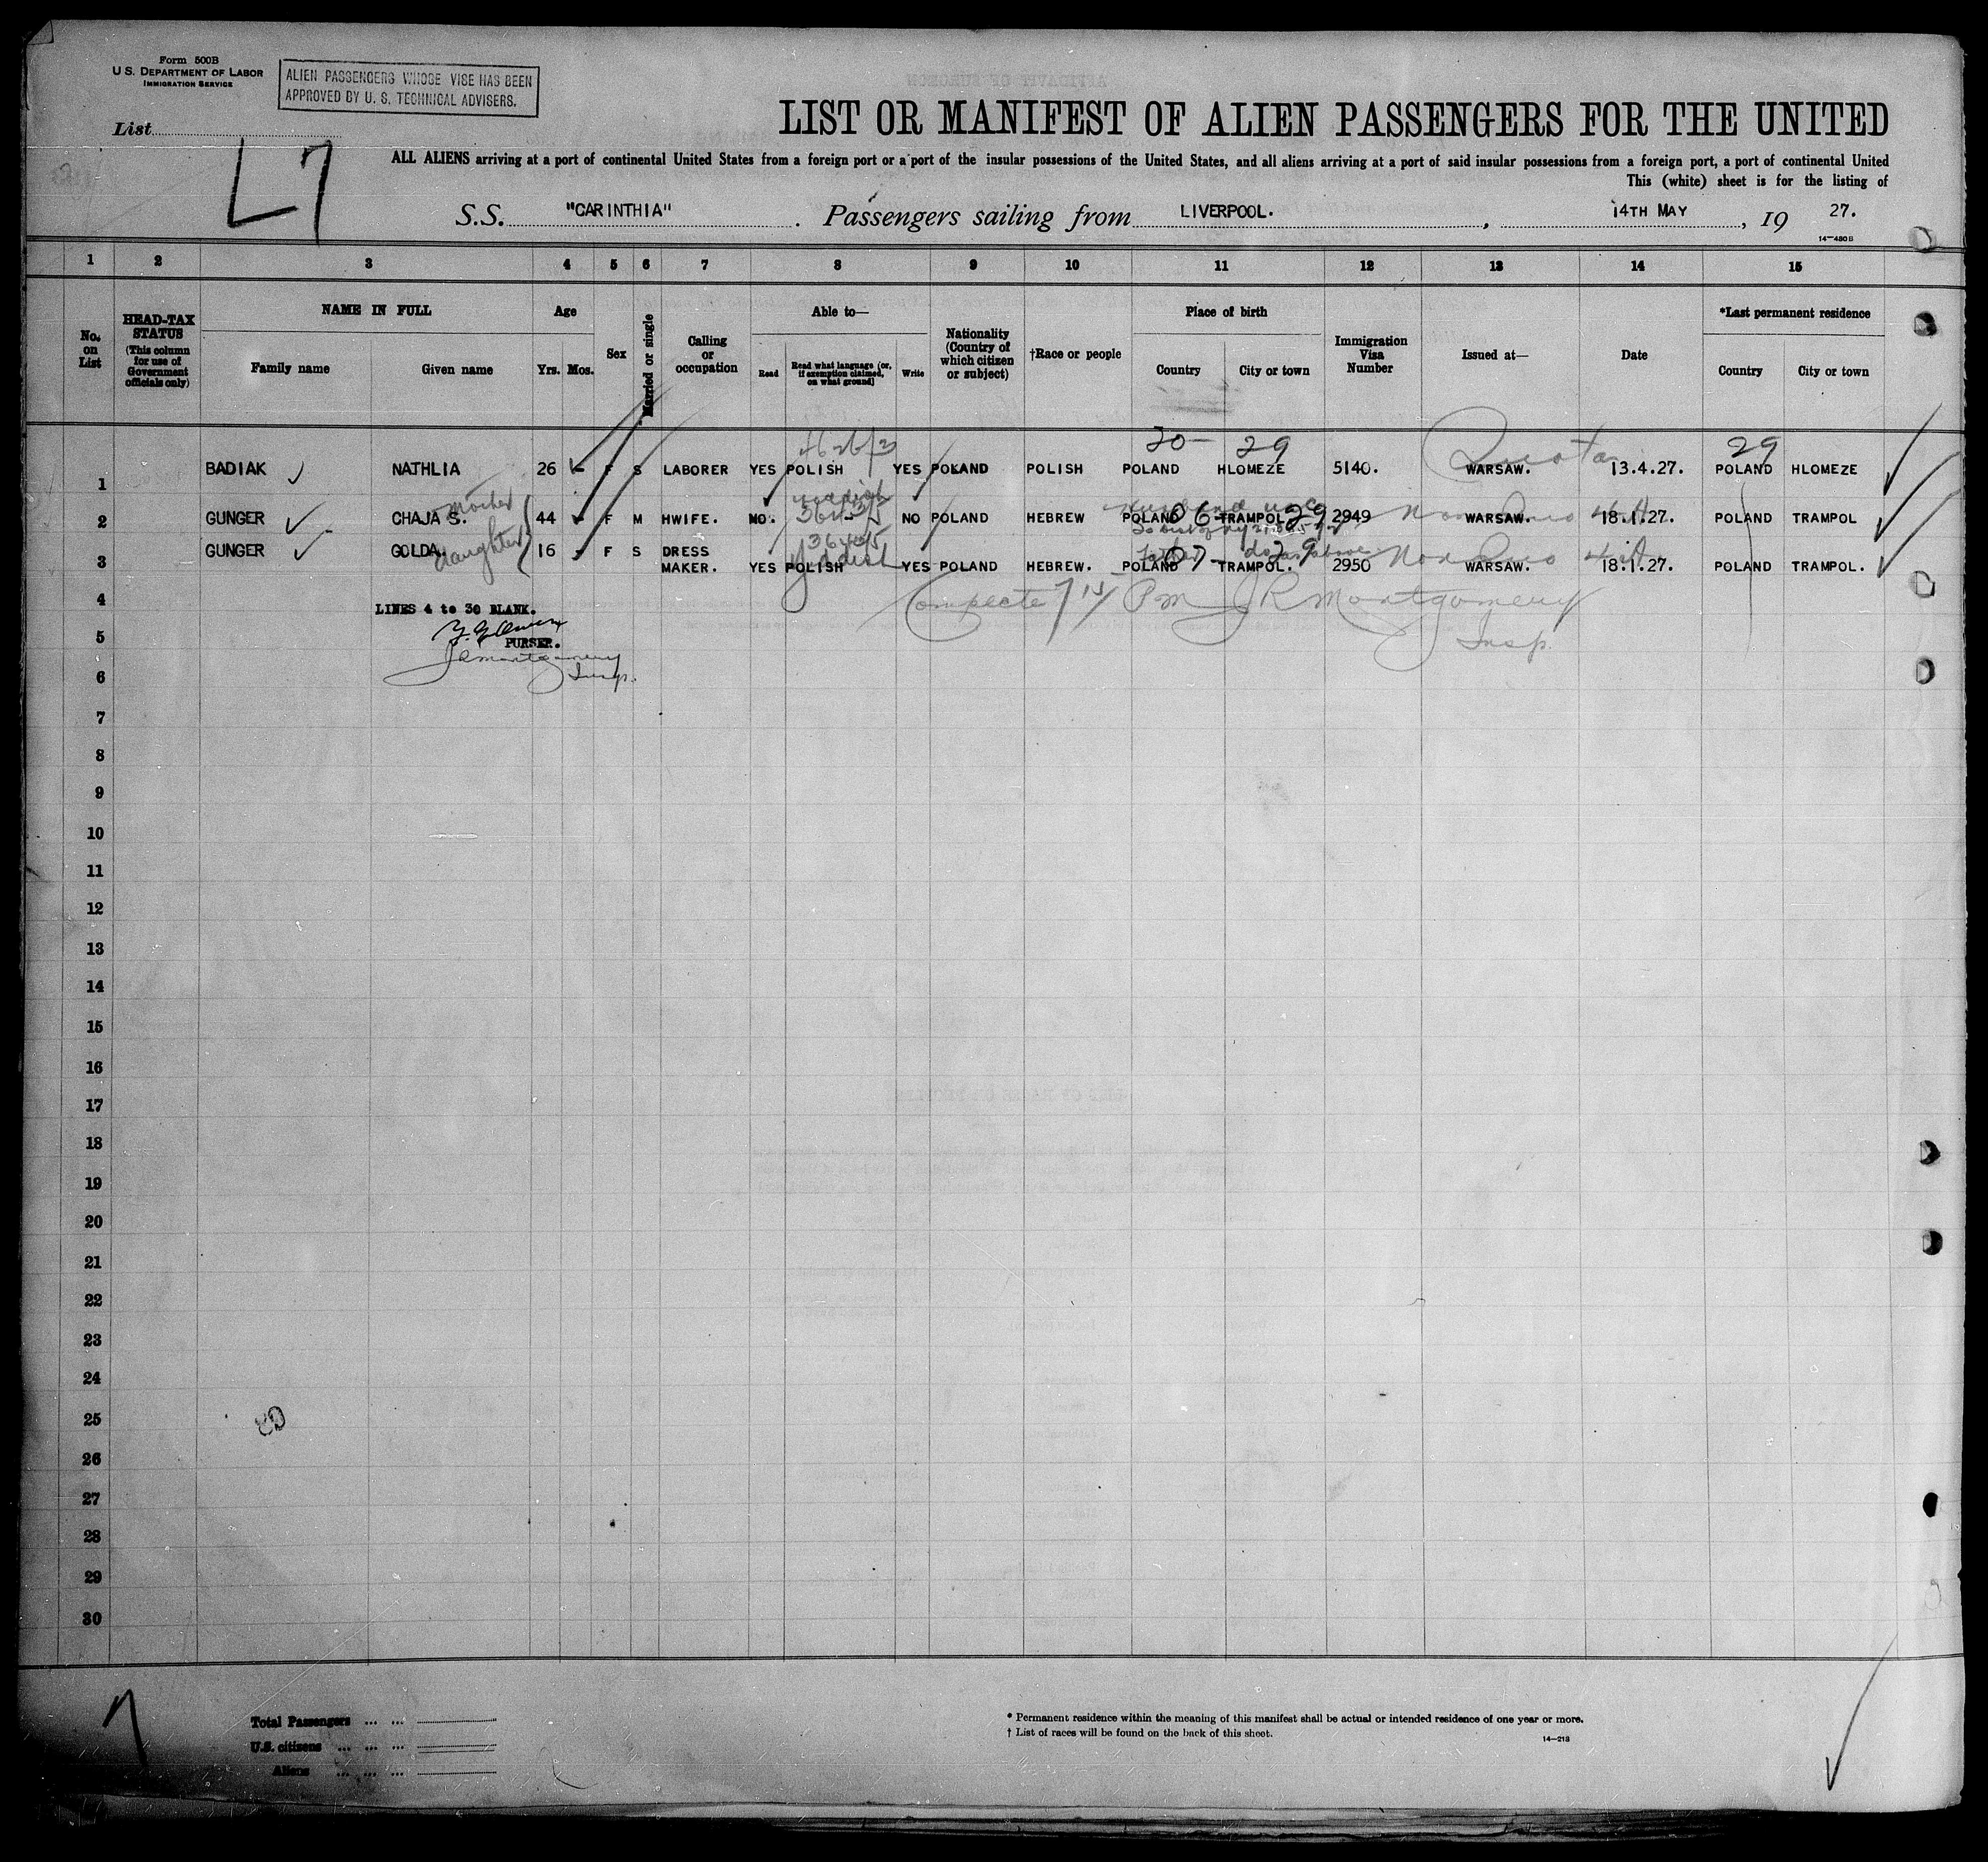 Form 500B
U.S. DEPARTMENT OF LABOR
IMMIGRATION SERVICE
ALIEN PASSENGERS WHOSE VISE HAS BEEN
APPROVED BY U. S. TECHNICAL ADVISERS.
List
L7
LIST OR MANIFEST OF ALIEN PASSENGERS FOR THE UNITED
ALL ALIENS arriving at a port of continental United States from a foreign port or a port of the insular possessions of the United States, and all aliens arriving at a port of said insular possessions from a foreign port, a port of continental United
This (white) sheet is for the listing of
S.S. "CARINTHIA" . Passengers sailing from LIVERPOOL. , 14TH MAY , 19 27.
14-480B
1 2 3 4 5 6 7 8 9 10 11 12 13 14 15
No. on List
HEAD-TAX STATUS (This column for use of Government officials only)
NAME IN FULL
Family name Given name
Age
Yrs. Mos.
Sex
Married or single
Calling or occupation
Able to—
Read Read what language (or, if exemption claimed, on what ground) Write
Nationality (Country of which citizen or subject)
†Race or people
Place of birth
Country City or town
Immigration Visa Number
Issued at—
Date
*Last permanent residence
Country City or town
20- 29 Quota 29
1 BADIAK NATHLIA 26 - F S LABORER YES POLISH YES POLAND POLISH POLAND HLOMEZE 5140. WARSAW. 13.4.27. POLAND HLOMEZE
Mother Yiddish
2 GUNGER CHAJA S. 44 - F M HWIFE. NO. NO POLAND HEBREW POLAND 06- TRAMPOL 29 2949 WARSAW. 18.1.27. POLAND TRAMPOL
daughter Father do as above
3 GUNGER GOLDA. 16 - F S DRESS MAKER. YES POLISH Yiddish YES POLAND HEBREW. POLAND 07- TRAMPOL. 29 2950 WARSAW. 18.1.27. POLAND TRAMPOL.
4
LINES 4 to 30 BLANK.
Complete 7 15/ Pm JR Montgomery
Insp.
5
PURSER.
JR Montgomery
Insp.
6
7
8
9
10
11
12
13
14
15
16
17
18
19
20
21
22
23
24
25
26
27
28
29
30
Total Passengers ... ...
U.S. citizens ... ... ...
Aliens ... ... ...
* Permanent residence within the meaning of this manifest shall be actual or intended residence of one year or more.
† List of races will be found on the back of this sheet.
14-213